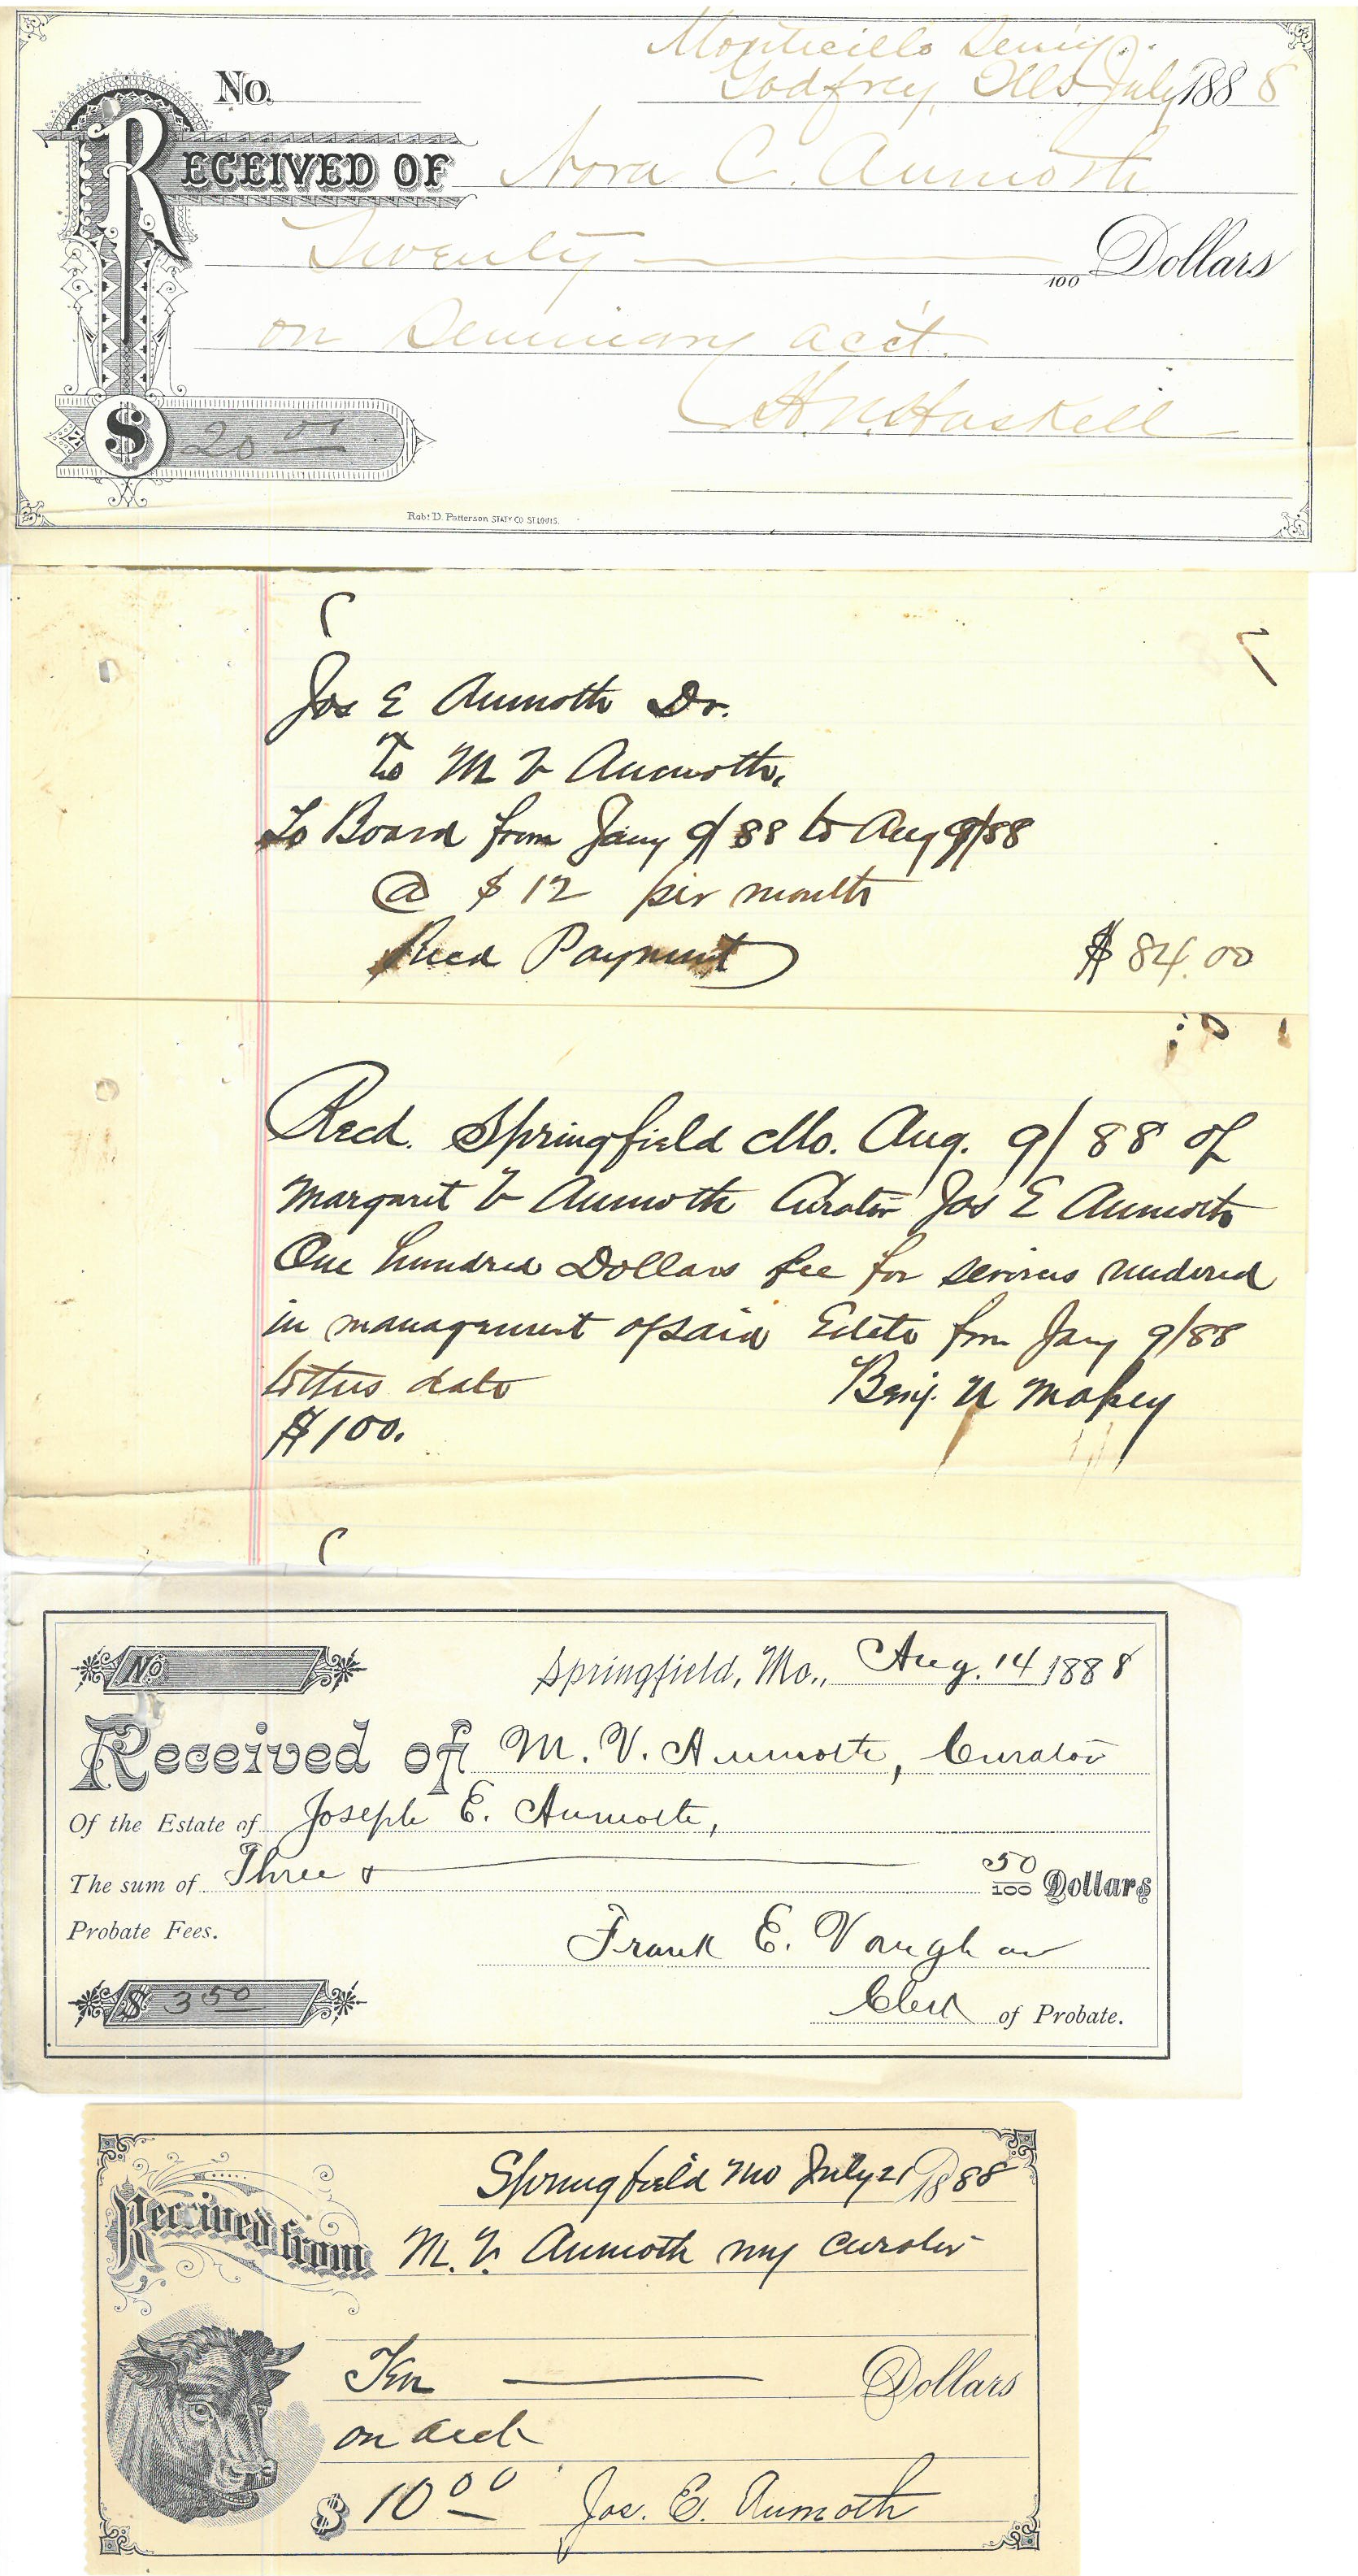 Monticello Semy.
No. Godfrey, Ills July 1888
RECEIVED OF Nora C. Aumoth
Twenty — 100 Dollars
on Seminary acct.
H. N. Haskell
$ 20 00
Robt D. Patterson STATY CO. ST. LOUIS.
Jos E Aumoth Dr.
To M V Aumoth.
To Board from Jany 9/88 to Aug 9/88
@ $12 per month
Recd Payment $84.00
Recd. Springfield Mo. Aug. 9/88 of
Margaret V Aumoth Curator Jos E Aumoth
One hundred Dollars fee for services rendered
in management of said Estate from Jany 9/88
to this date Benj. U Massey
$100.
No. Springfield, Mo., Aug. 14 1888
Received of M. V. Aumoth, Curator
Of the Estate of Joseph E. Aumoth,
The sum of Three & — 50/100 Dollars
Probate Fees. Frank E. Vaughan
$ 3 50 Clerk of Probate.
Springfield Mo July 21 1888
Received from M. V. Aumoth my curator
Ten — Dollars
on acct
$ 10 00 Jos. E. Aumoth